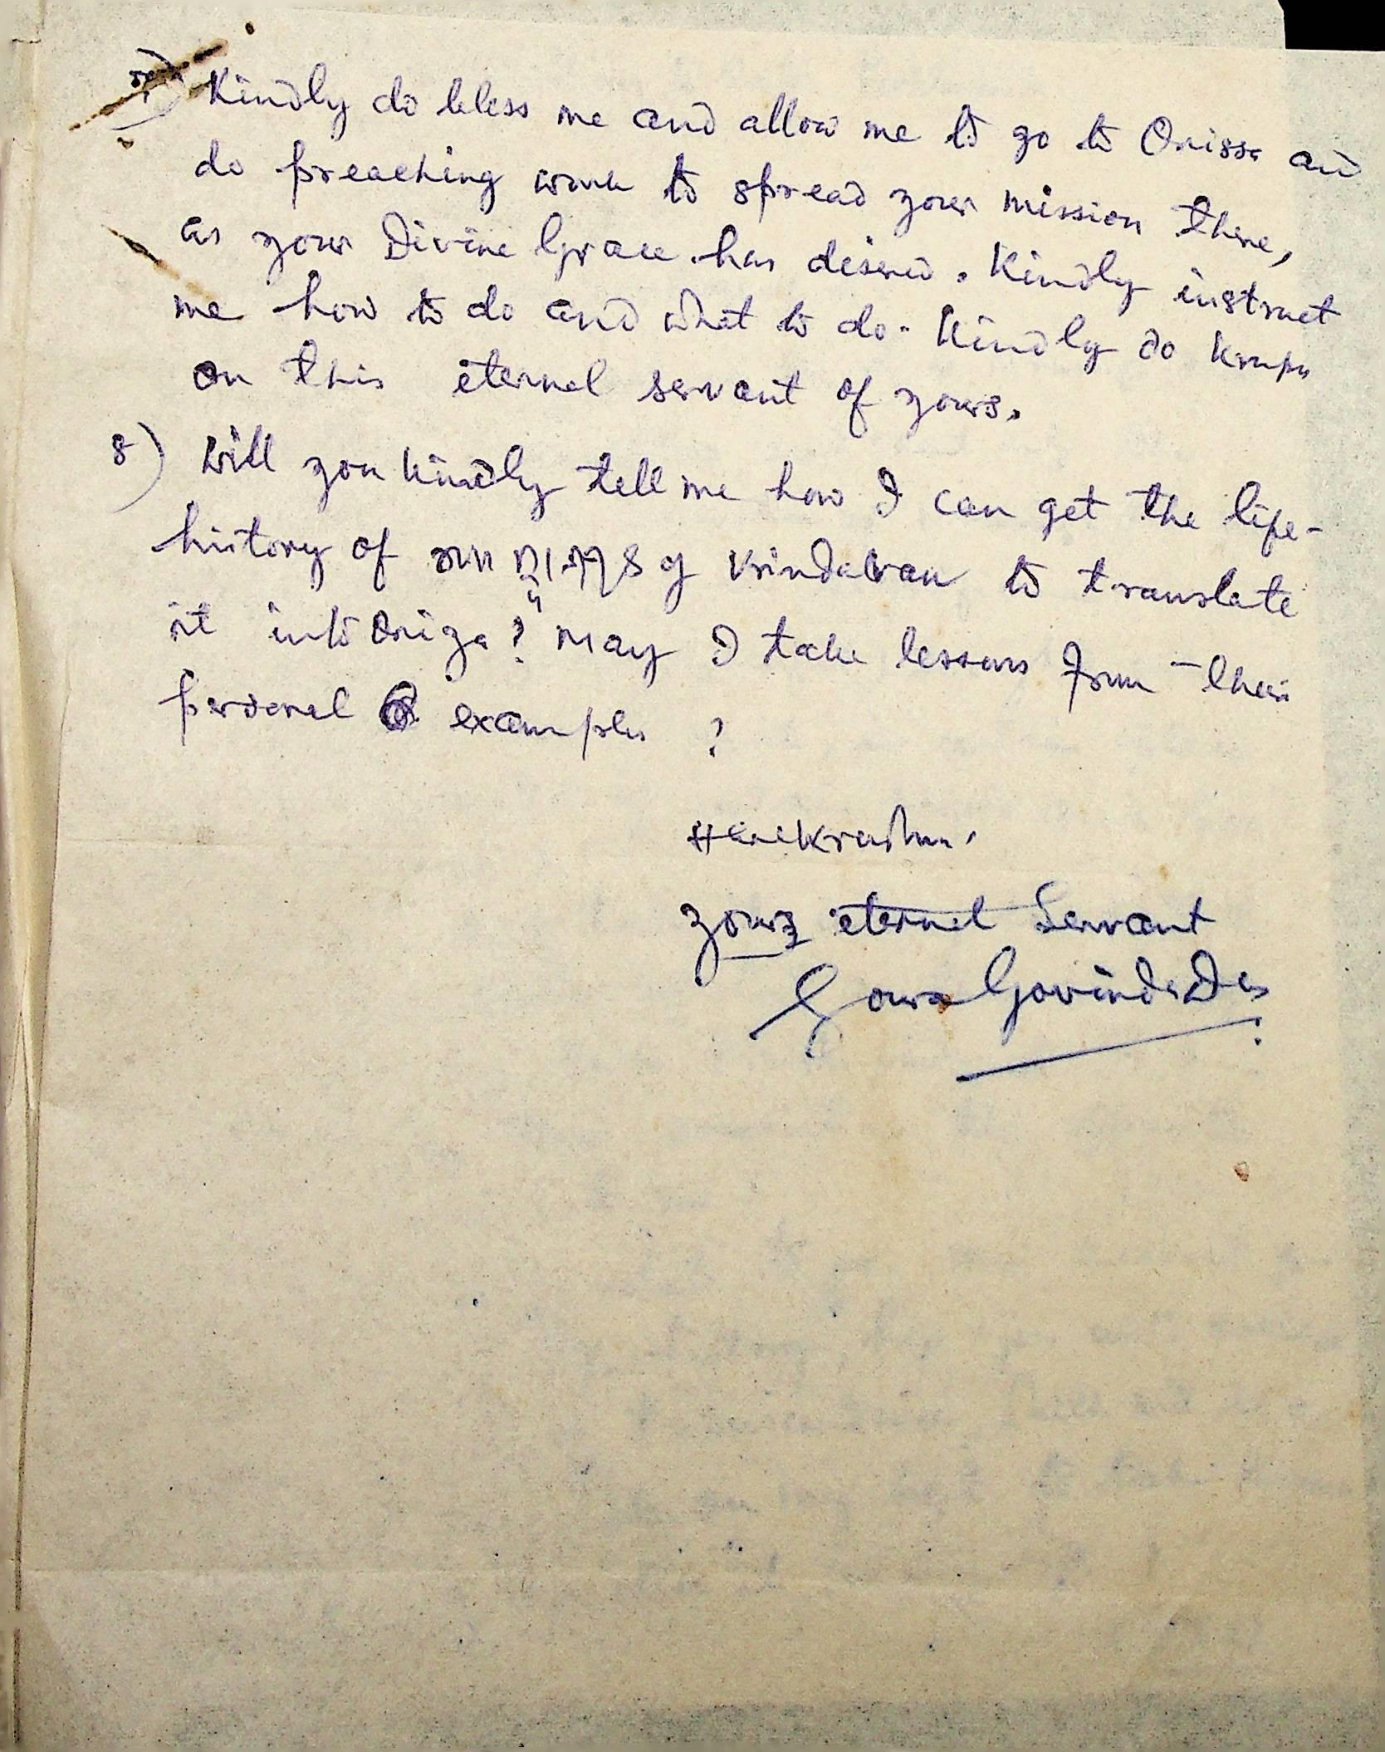 Kindly do bless me and allow me to go to Orissa and
do preaching work to spread your mission there,
as your Divine Grace has desired. Kindly instruct
me how to do and what to do. Kindly do krupa
on this eternal servant of yours.
8) Will you kindly tell me how I can get the life-
history of of Vrindaban to translate
it into Oriya? May I take lessons from their
personal examples ?
Harekrushna.
Yours eternal Servant
Goura Govinda Das